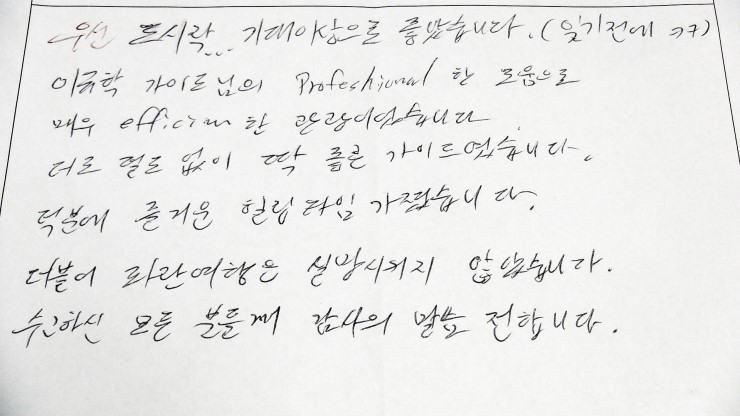 우선 도시락... 기대이상으로 좋았습니다. (잊기전에 ㅋㅋ)
이규학 가이드님의 Profeshional 한 도움으로
매우 efficien 한 관광이었습니다
더도 덜도 없이 딱 좋은 가이드였습니다.
덕분에 즐거운 힐링타임 가졌습니다.
더불어 파란여행은 실망시키지 않았습니다.
수고하신 모든 분들께 감사의 말씀 전합니다.